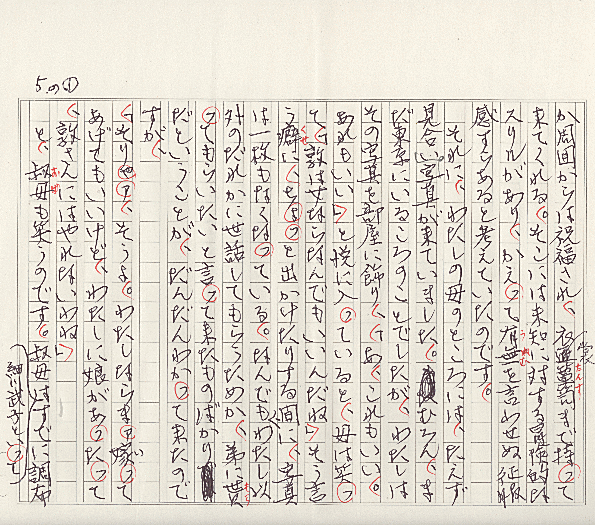 5の①
が周囲からは祝福され、衣裳箪笥まで持って
来てくれる。そこには未知に対する冒険的な
スリルがあり、かえって有無を言わせぬ征服
感すらあると考えていたのです。
それに、わたしの母のところには、たえず
見合い写真が来ていました。むろん、ま
だ東京にいるころのことでしたが、わたしは
その写真を部屋に飾り、「あ、これもいい。
あれもいい」と悦に入っていると、母は笑っ
て、「敦は女ならなんでもいいんだね」そう言
う癖に、ちょっと出かけたりする間に、写真
は一枚もなくなっている。なんでもわたし以
外のだれかに世話してもらうためか、弟に貰
ってもらいたいと言って来たものばかり
だということが、だんだんわかって来たので
すが、
「そりゃそうよ。わたしならまだ嫁って
あげてもいいけど、わたしに娘があったって
、敦さんにはやれないわね」
と、叔母も笑うのです。叔母はすでに調布